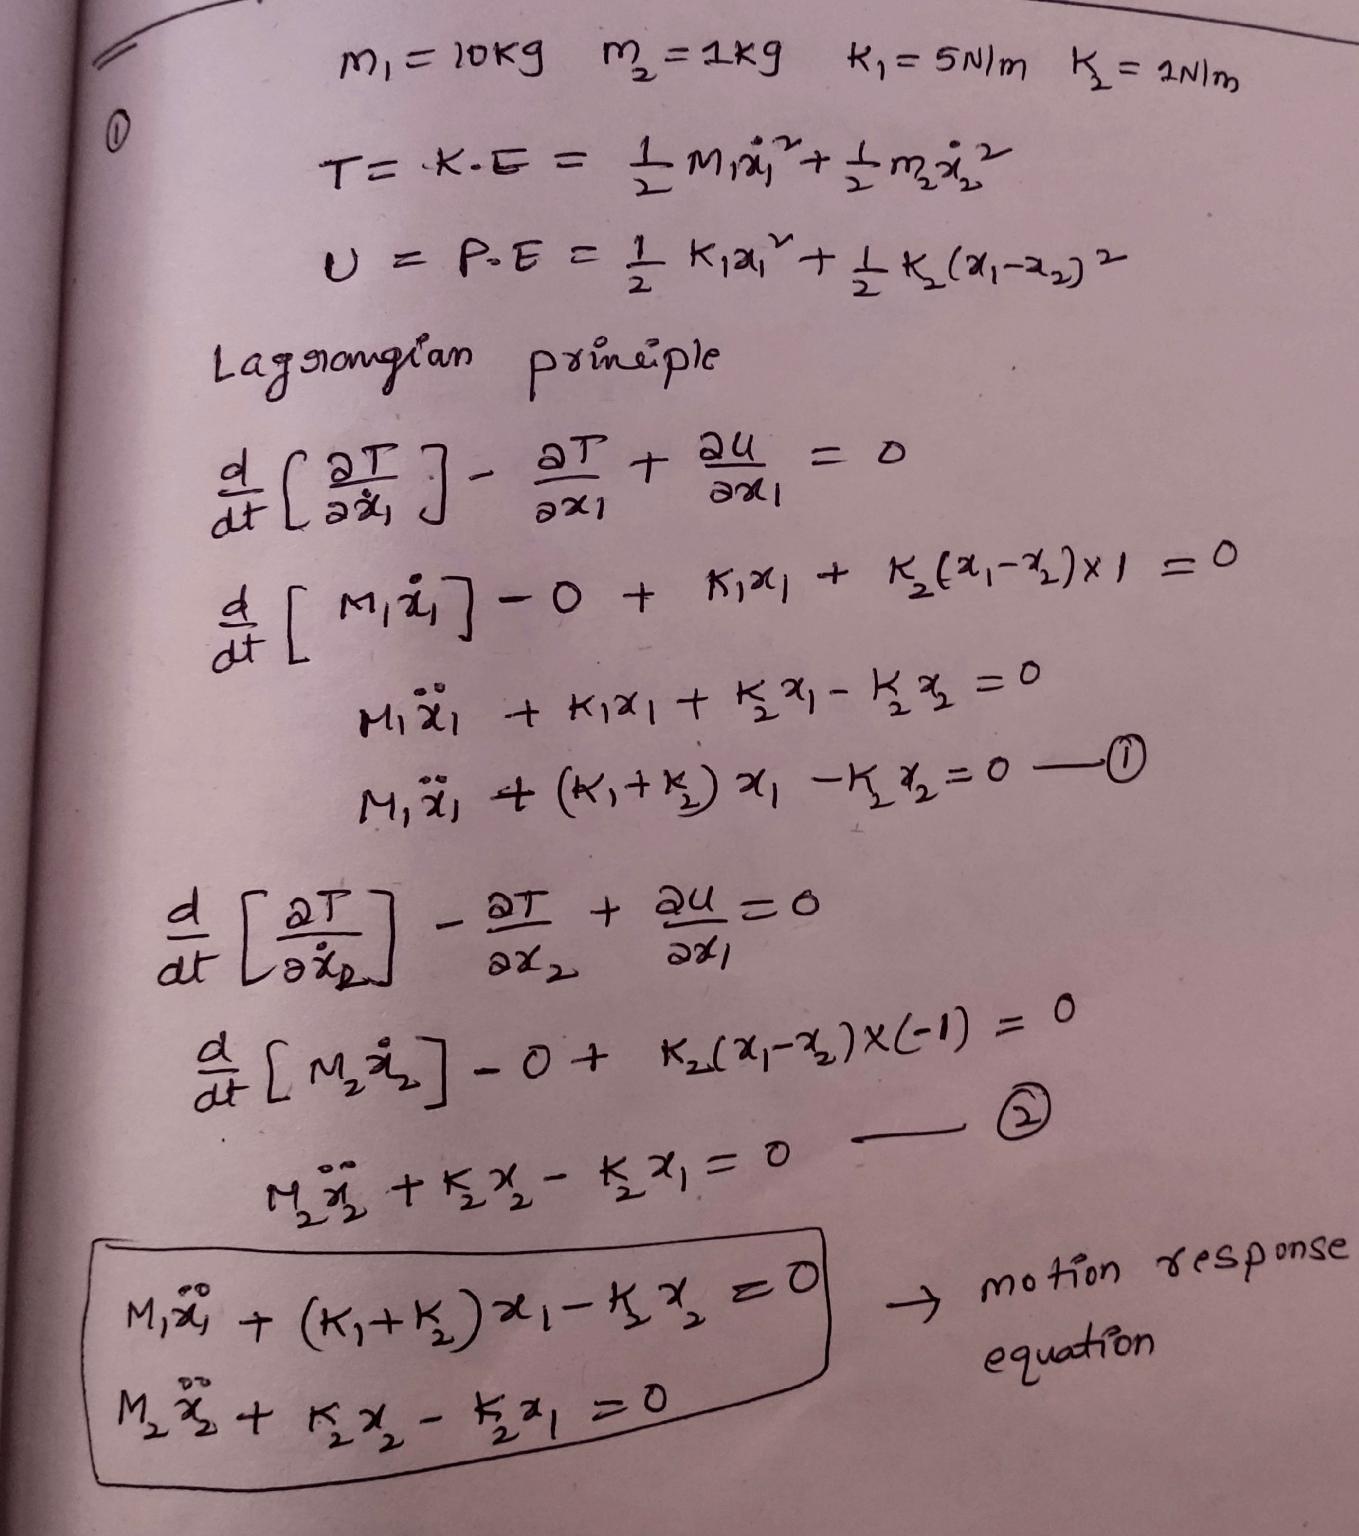 m₁ = 10kg m₂ = 1kg K₁ = 5N/m K₂ = 2N/m
①
T = K.E = 1/2 M₁ẋ₁² + 1/2 m₂ẋ₂²
U = P.E = 1/2 K₁x₁² + 1/2 K₂(x₁-x₂)²
Lagrangian principle
d/dt [∂T/∂ẋ₁] - ∂T/∂x₁ + ∂U/∂x₁ = 0
d/dt [M₁ẋ₁] - 0 + K₁x₁ + K₂(x₁-x₂)×1 = 0
M₁ẍ₁ + K₁x₁ + K₂x₁ - K₂x₂ = 0
M₁ẍ₁ + (K₁+K₂)x₁ - K₂x₂ = 0 — ①
d/dt [∂T/∂ẋ₂] - ∂T/∂x₂ + ∂U/∂x₁ = 0
d/dt [M₂ẋ₂] - 0 + K₂(x₁-x₂)×(-1) = 0
M₂ẍ₂ + K₂x₂ - K₂x₁ = 0 — ②
M₁ẍ₁ + (K₁+K₂)x₁ - K₂x₂ = 0 → motion response
equation
M₂ẍ₂ + K₂x₂ - K₂x₁ = 0